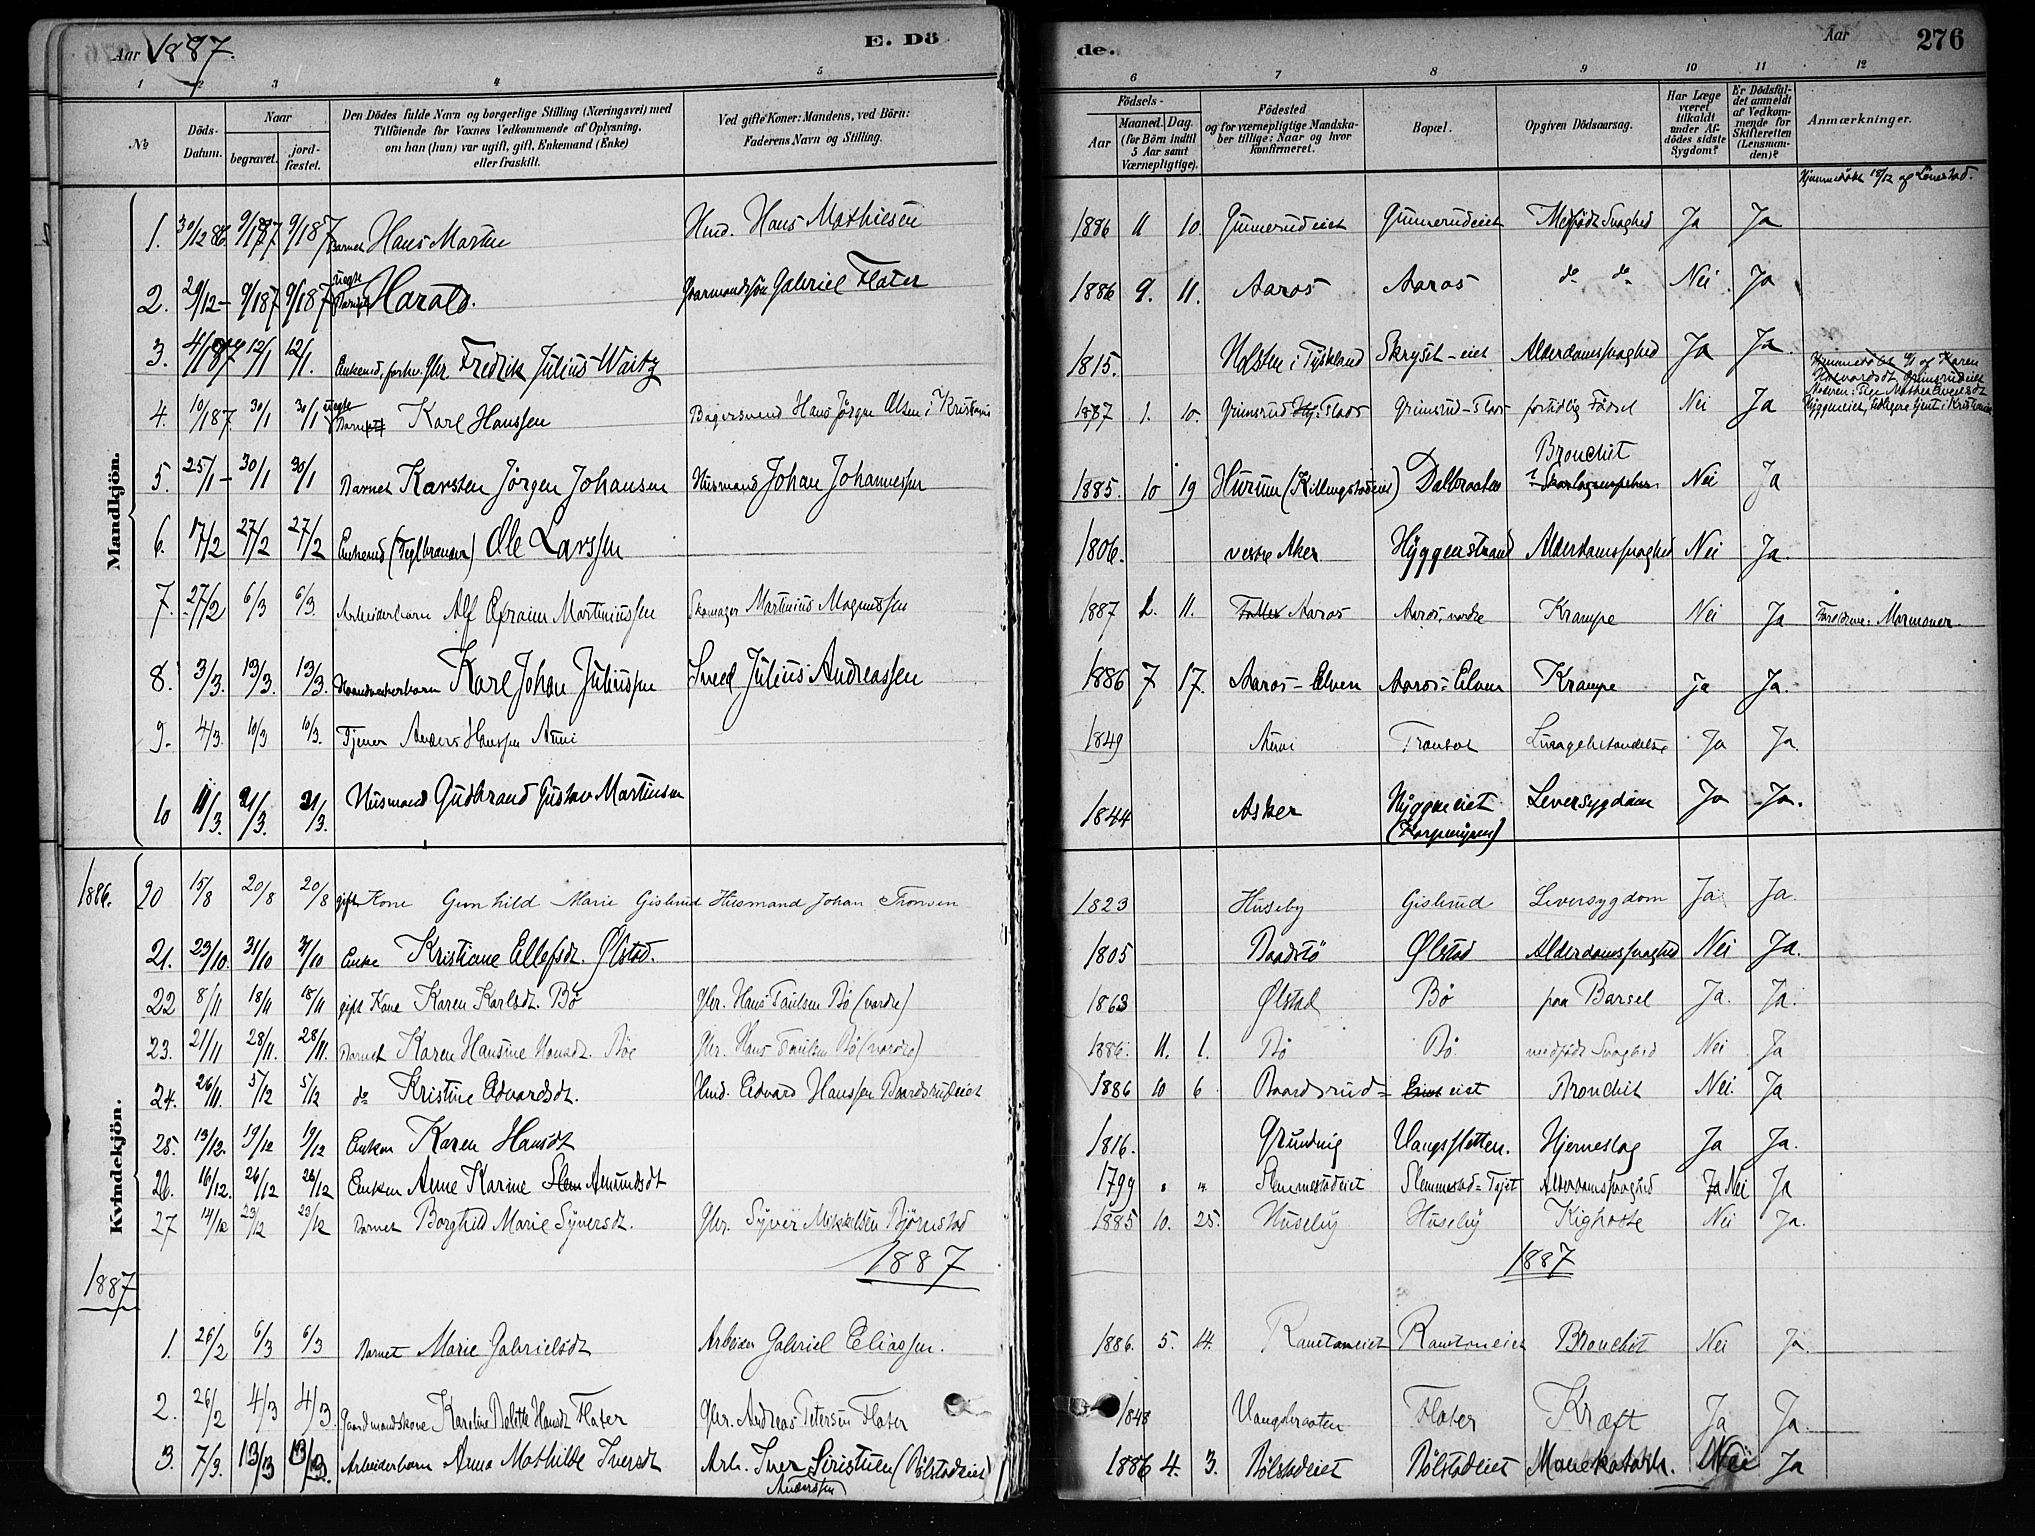 Aar 1887. E. Dö
1 2 3 4 5
№ Döds-Datum. Naar begravet. jordfæstet. Den Dödes fulde Navn og borgerlige Stilling (Næringsvei) med Tilföiende for Voxnes Vedkommende af Oplysning, om han (hun) var ugift, gift, Enkemand (Enke) eller fraskilt. Ved gifte Koner: Mandens, ved Börn: Faderens Navn og Stilling.
Mandkjön.
1. 30/12 86 9/1 87 9/1 87 Barnet Hans Martin Hmd. Hans Mathiesen
2. 29/12 - 9/1 87 9/1 87 uegte Barnet Harald. Gaarmandssøn Gabriel Flater
3. 4/1 87 12/1 12/1. Enkemd, forhv. Gbr. Fredrik Julius Waitz
4. 10/1 87. 30/1 30/1 uegte Barn Karl Hanssen Bagersvend Hans Jørgen Olsen i Kristiania
5. 25/1 - 30/1 30/1 Barnet Karsten Jørgen Johansen Husmand Johan Johannessen
6. 17/2 27/2 27/2 Enkemd (Teglbrænder) Ole Larssen
7. 27/2 6/3 6/3 Arbeiderbarn Alf Efraim Martiniussen Skomager Martinius Magnussen
8. 3/3. 13/3. 13/3. Haandværkerbarn Karl Johan Juliussen Smed Julius Andreassen
9. 4/3. 10/3 10/3. Tjener Anders Hanssen Auvi
10 11/3. 21/3. 21/3. Husmand Gudbrand Gustav Martinsen
Kvindekjön.
1886. 20 15/8 20/8 20/8 gift Kone Gunhild Marie Gislerud Husmand Johan Tronsen
21. 23/10. 31/10 31/10 Enke Kristiane Ellefsdt. Ølstad.
22 8/11 18/11 18/11 gift Kone Karen Karlsdt. Bø Gbr. Hans Paulsen Bø (nordre)
23. 21/11 28/11. 28/11. Barnet Karen Hansine Hansdt. Bøe Gbr. Hans Paulsen Bø (nordre)
24. 26/11. 5/12 5/12 do Kristine Edvardsdt. Hmd. Edvard Hanssen Baardsrudeiet
25. 13/12. 19/12 19/12 Enken Karen Hansdt
26. 16/12. 26/12 26/12 Enken Anne Karine Amundsdt
27 14/12 29/12 29/12 Barnet Borghild Marie Syversdt. Gbr. Syver Mikkelsen Bjørnstad
1887
1887
1. 26/2 6/3 6/3 Barnet Marie Gabrielsdt Arbeider Gabriel Eliassen.
2. 26/2 4/3 4/3. Gaardmandskone Karoline Bolette Hansdt Flater Gbr. Andreas Petersen Flater
3. 7/3. 13/3 13/3. Arbeiderbarn Anna Mathilde Iversdt Arb. Iver Siristuen (Bølstadeiet)
Anderssen
de. Aar 276
6 7 8 9 10 11 12
Födsels- Aar Maaned. Dag. (for Börn indtil 5 Aar samt Værnepligtige). Födested og for værnepligtige Mandskaber tillige: Naar og hvor konfirmeret. Bopæl. Opgiven Dödsaarsag. Har Læge været tilkaldt under Afdödes sidste Sygdom? Er Dödsfaldet anmeldt af Vedkommende for Skifteretten (Lensmanden)? Anmærkninger.
Hjemmedøbt 18/12 af Lønestad.
1886 11 10. Gunnerudeiet Gunnerudeiet Medfødt Svaghed Ja Ja
1886 9. 11. Aaros Aaros do do Nei. Ja
1815. Holsten i Tyskland Skryset-eiet Alderdomssvaghed Ja Ja.
Hjemmedøbt 9/1 af Karen Haavardsdt. Grimsrudeiet
Moderen: Pige Mathea Iversdt
Hyggeneiet, tidligere tjent i Kristiania
1887 1. 10. Grimsrud Flaar Grimsrud-Flaar fortidlig Fødsel Nei Ja
1885. 10 19 Hurum (Killingstadeiet) Dalbraaten Bronchit Nei Ja
1806. vestre Aker Hyggenstrand Alderdomssvaghed Nei Ja.
1887 2. 11. Aaros Aaros, nordre Krampe Nei Ja Forældrene: Mormoner.
1886 7 17. Aaros-Elven Aaros-Elven Krampe ja Ja.
1849 Auvi Tranby Lungebetændelse Ja Ja.
1844 Asker Hyggeneiet Leversygdom Ja Ja.
1823 Huseby Gislerud Leversygdom Ja Ja.
1805 Baadstø Ølstad Alderdomssvaghed Nei Ja.
1863 Ølstad Bø paa Barsel Ja. Ja.
1886. 11. 1. Bø Bø. medfødt Svaghed Nei Ja
1886 10 6. Baardsrud= eiet Bronchit Nei. Ja
1816. Grundvig Vangsfletten. Hjerneslag Ja Ja.
1799 Slemmestadeiet Slemmestad-Tejet Alderdomssvaghed Nei Ja
1885 10. 25. Huseby Huseby Kighoste Nei Ja.
1887
1886. 5. 14. Ramtoneiet Ramtoneiet Bronchit Nei Ja.
1848 Vangbraaten Flater Kræft Ja Ja.
1886 4. 3. Bølstadeiet Bølstadeiet Mavekatarh. Nei Ja